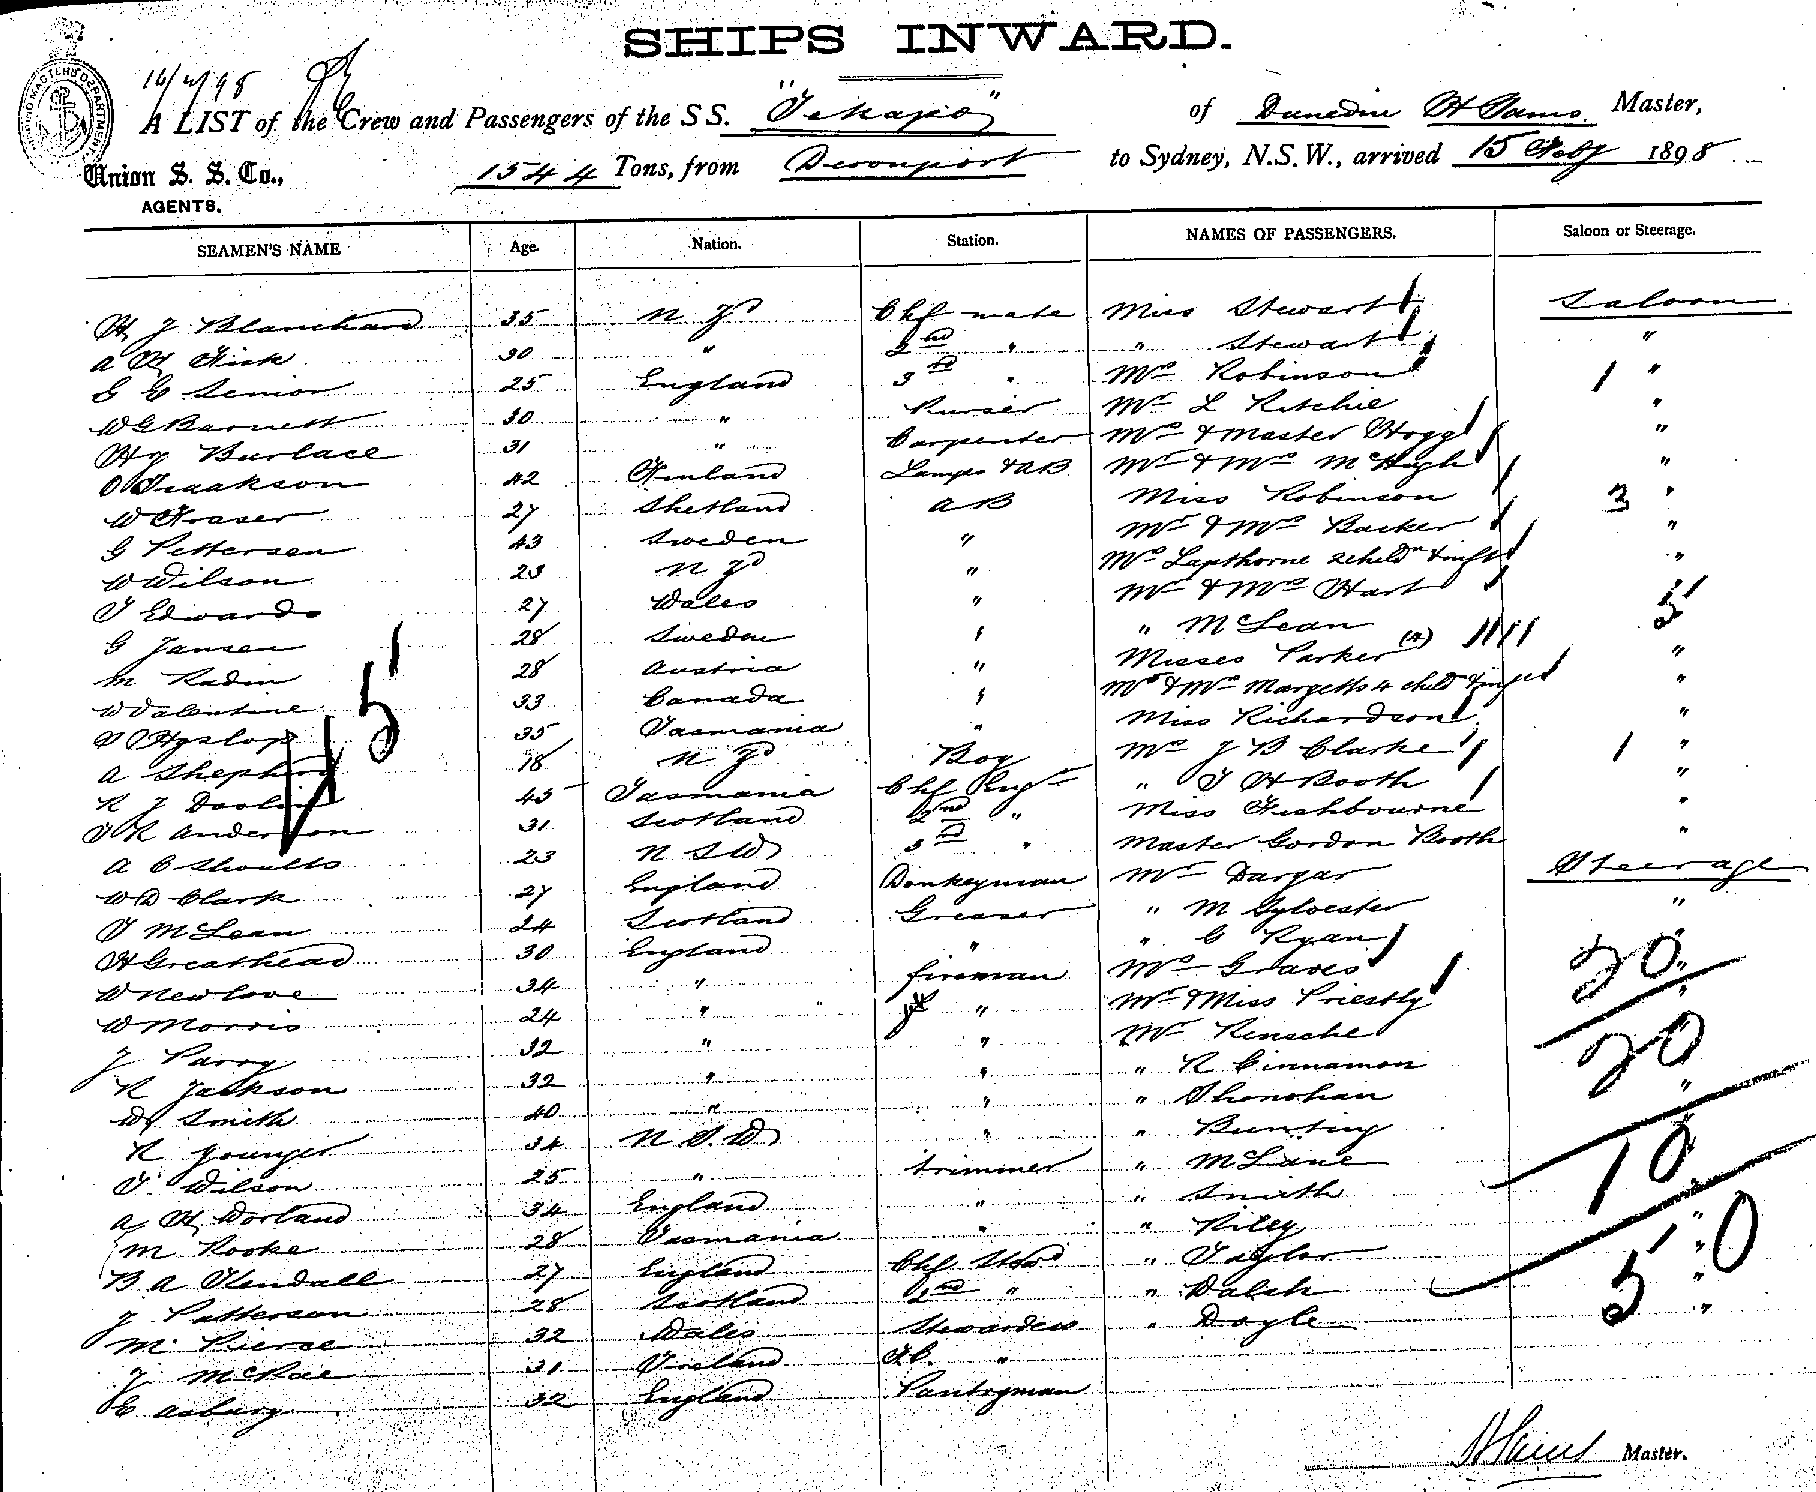 SHIPS INWARD.
16/2/98
A LIST of the Crew and Passengers of the SS. "Tekapo" of Dunedin H Sams. Master,
Union S. S. Co., 1544 Tons, from Devonport to Sydney, N.S.W., arrived 15 Feby 1898
AGENTS.
SEAMEN'S NAME Age. Nation. Station. NAMES OF PASSENGERS. Saloon or Steerage.
H J Blanchard 35 N Zd Chf mate Miss Stewart Saloon
A H Fisk 30 " 2nd " " Stewart "
G G Senior 25 England 3rd " Mrs Robinson 1 "
W G Barnett 30 " Purser Mr L Ritchie "
Hy Burlace 31 " Carpenter Mrs & Master Hogg "
O Isaakson 42 Finland Lamps & AB Mr & Mrs McHugh "
W Fraser 27 Shetland AB Miss Robinson 3 "
G Pettersen 43 Sweden " Mr & Mrs Backer "
W Wilson 23 N Zd " Mrs Lapthorne 2 child & inft "
T Edwards 27 Wales " Mr & Mrs Hart 5
G Jansen 28 Sweden " " McLean
M Radin 28 Austria " Misses Parker (4) "
W Valentine 33 Canada " Mr & Mrs Margetts 4 child & inft "
Hyslop 35 Tasmania " Miss Richardson "
A Shepherd 18 N Zd Boy Mrs J B Clarke 1 "
R J Darling 45 Tasmania Chf Engr " T H Booth "
T R Anderson 31 Scotland 2nd " Miss Fishbourne "
A C Shoults 23 N S W 3rd " Master Gordon Booth "
W D Clark 27 England Donkeyman Mr Dargar Steerage
T McLean 24 Scotland Greaser " M Sylvester "
H Greathead 30 England " " G Ryan
W Newlove 34 " fireman Mrs Graves 20
W Morris 24 " " Mr & Miss Priestly
J Parry 32 " " Mr Rensche 20
R Jackson 32 " " " R Cinnamon
W Smith 40 " " " Shonohan "
R Younger 34 N S W " " Bunting 10
T Wilson 25 " trimmer " McLane
A H Dorland 34 England " " Smith
M Rooke 28 Tasmania " " Riley "
B A Kendall 27 England Chf Stwd " Taylor 50
J Patterson 28 Scotland 2nd " " Walsh "
M Pierce 32 Wales Stewardess " Doyle "
J McRae 31 Ireland "
C Asbury 32 England Pantryman
15
H Sams Master.